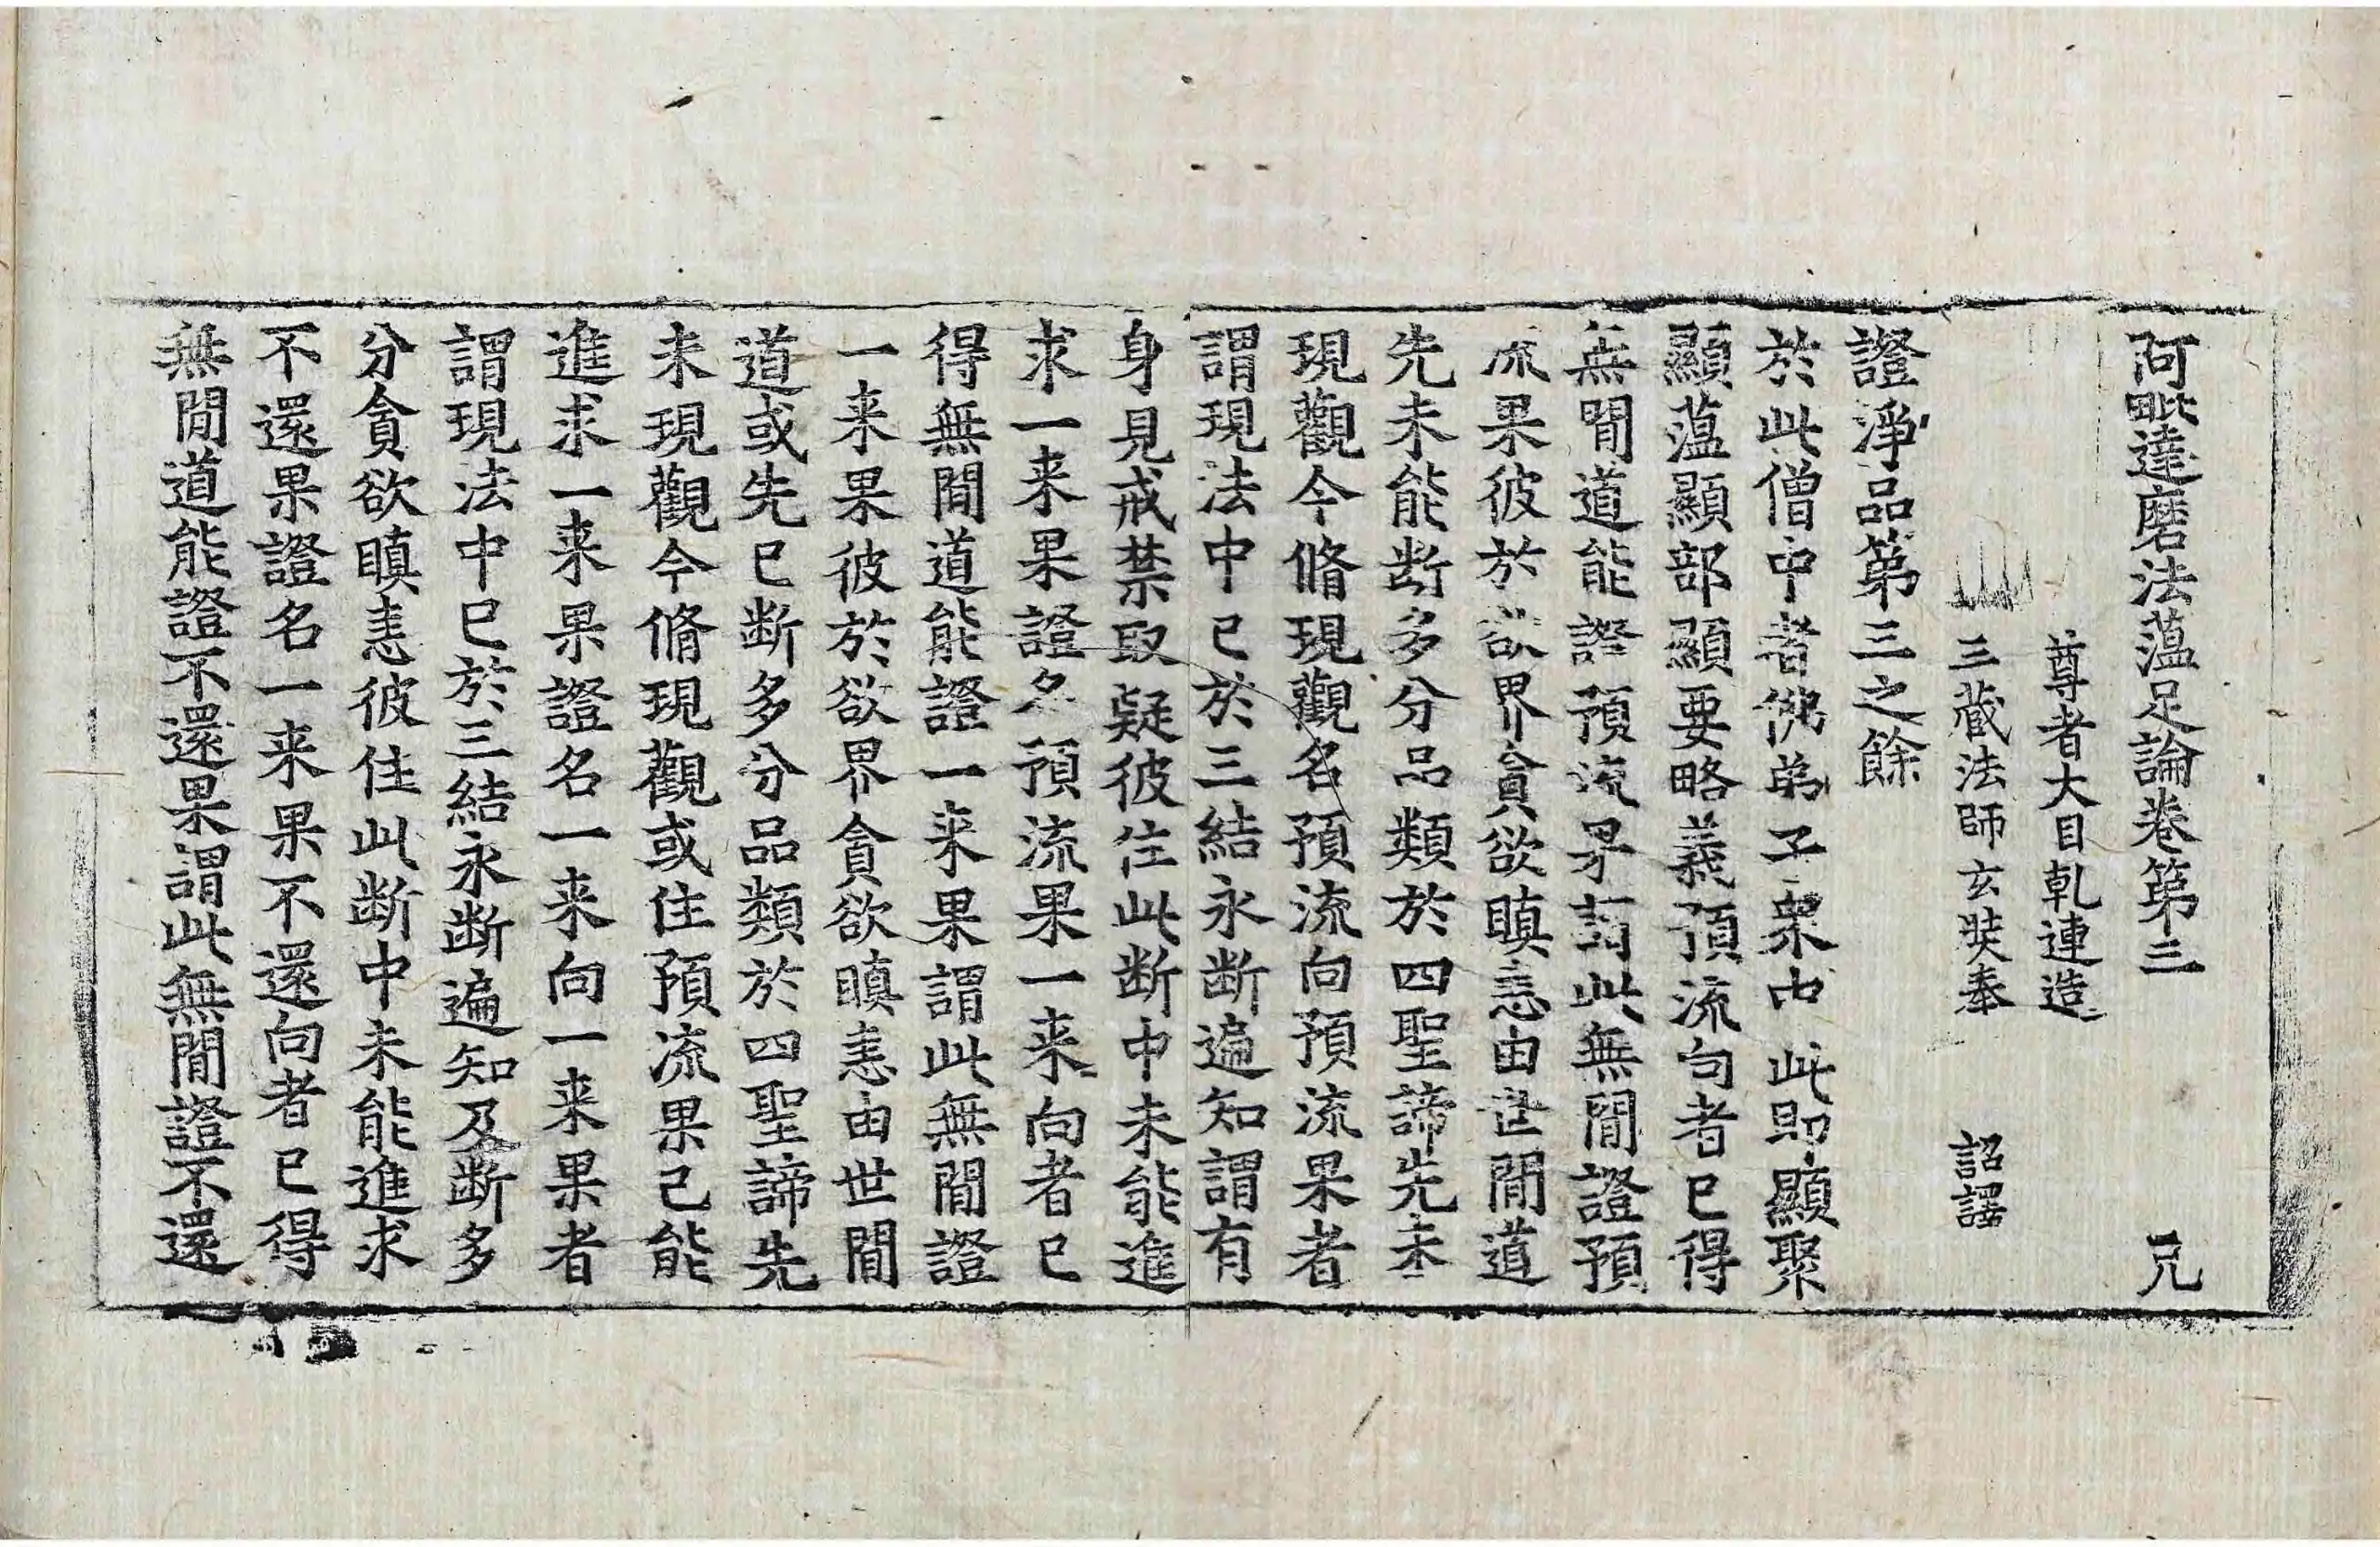 阿毗達磨法蕴足論卷第三　兄
尊者大目乹連造
三藏法師玄奘奉　詔譯
證淨品第三之餘
於此僧中者佛弟子衆中此即顯聚
顯蕰顯部顯要略義預流向者已得
無閒道能證預流果謂此無閒證預
流果彼於欲界貪欲瞋恚由世閒道
先未能断多分品類於四聖諦先未
現觀今脩現觀名預流向預流果者
謂現法中已於三結永断遍知謂有
身見戒禁取疑彼住此断中未能進
求一来果證名預流果一来向者已
得無閒道能證一来果謂此無閒證
一来果彼於欲界貪欲瞋恚由世閒
道或先已断多分品類於四聖諦先
未現觀今脩現觀或住預流果已能
進求一来果證名一来向一来果者
謂現法中已於三結永断遍知及断多
分貪欲瞋恚彼住此断中未能進求
不還果證名一来果不還向者已得
無閒道能證不還果謂此無閒證不還